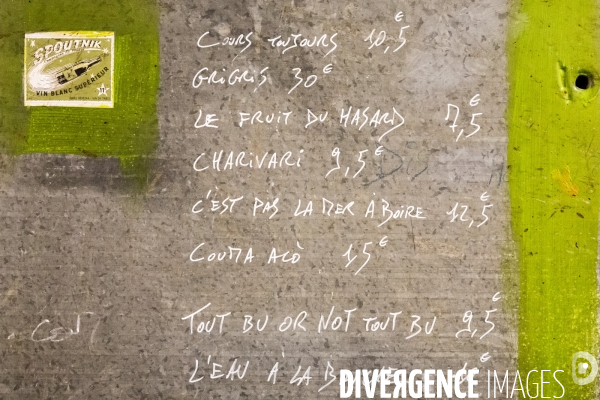 SPOUTNIK
VIN BLANC SUPÉRIEUR
COURS TOUJOURS 10,5€
GRIGRIS 30€
LE FRUIT DU HASARD 7,5€
CHARIVARI 9,5€
C'EST PAS LA MER À BOIRE 12,5€
COUMA ACÒ 15€
TOUT BU OR NOT TOUT BU 9,5€
L'EAU À LA
DIVERGENCE IMAGES